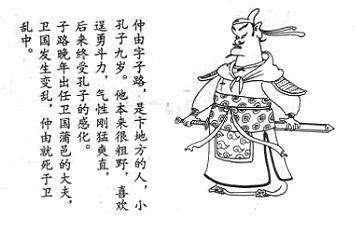 仲由字子路，是卞地方的人，小
孔子九岁。他本来很粗野，喜欢
逞勇斗力，气性刚猛爽直，
后来终受孔子的感化。
子路晚年出任卫国蒲邑的大夫，
卫国发生变乱，仲由就死于卫
乱中。